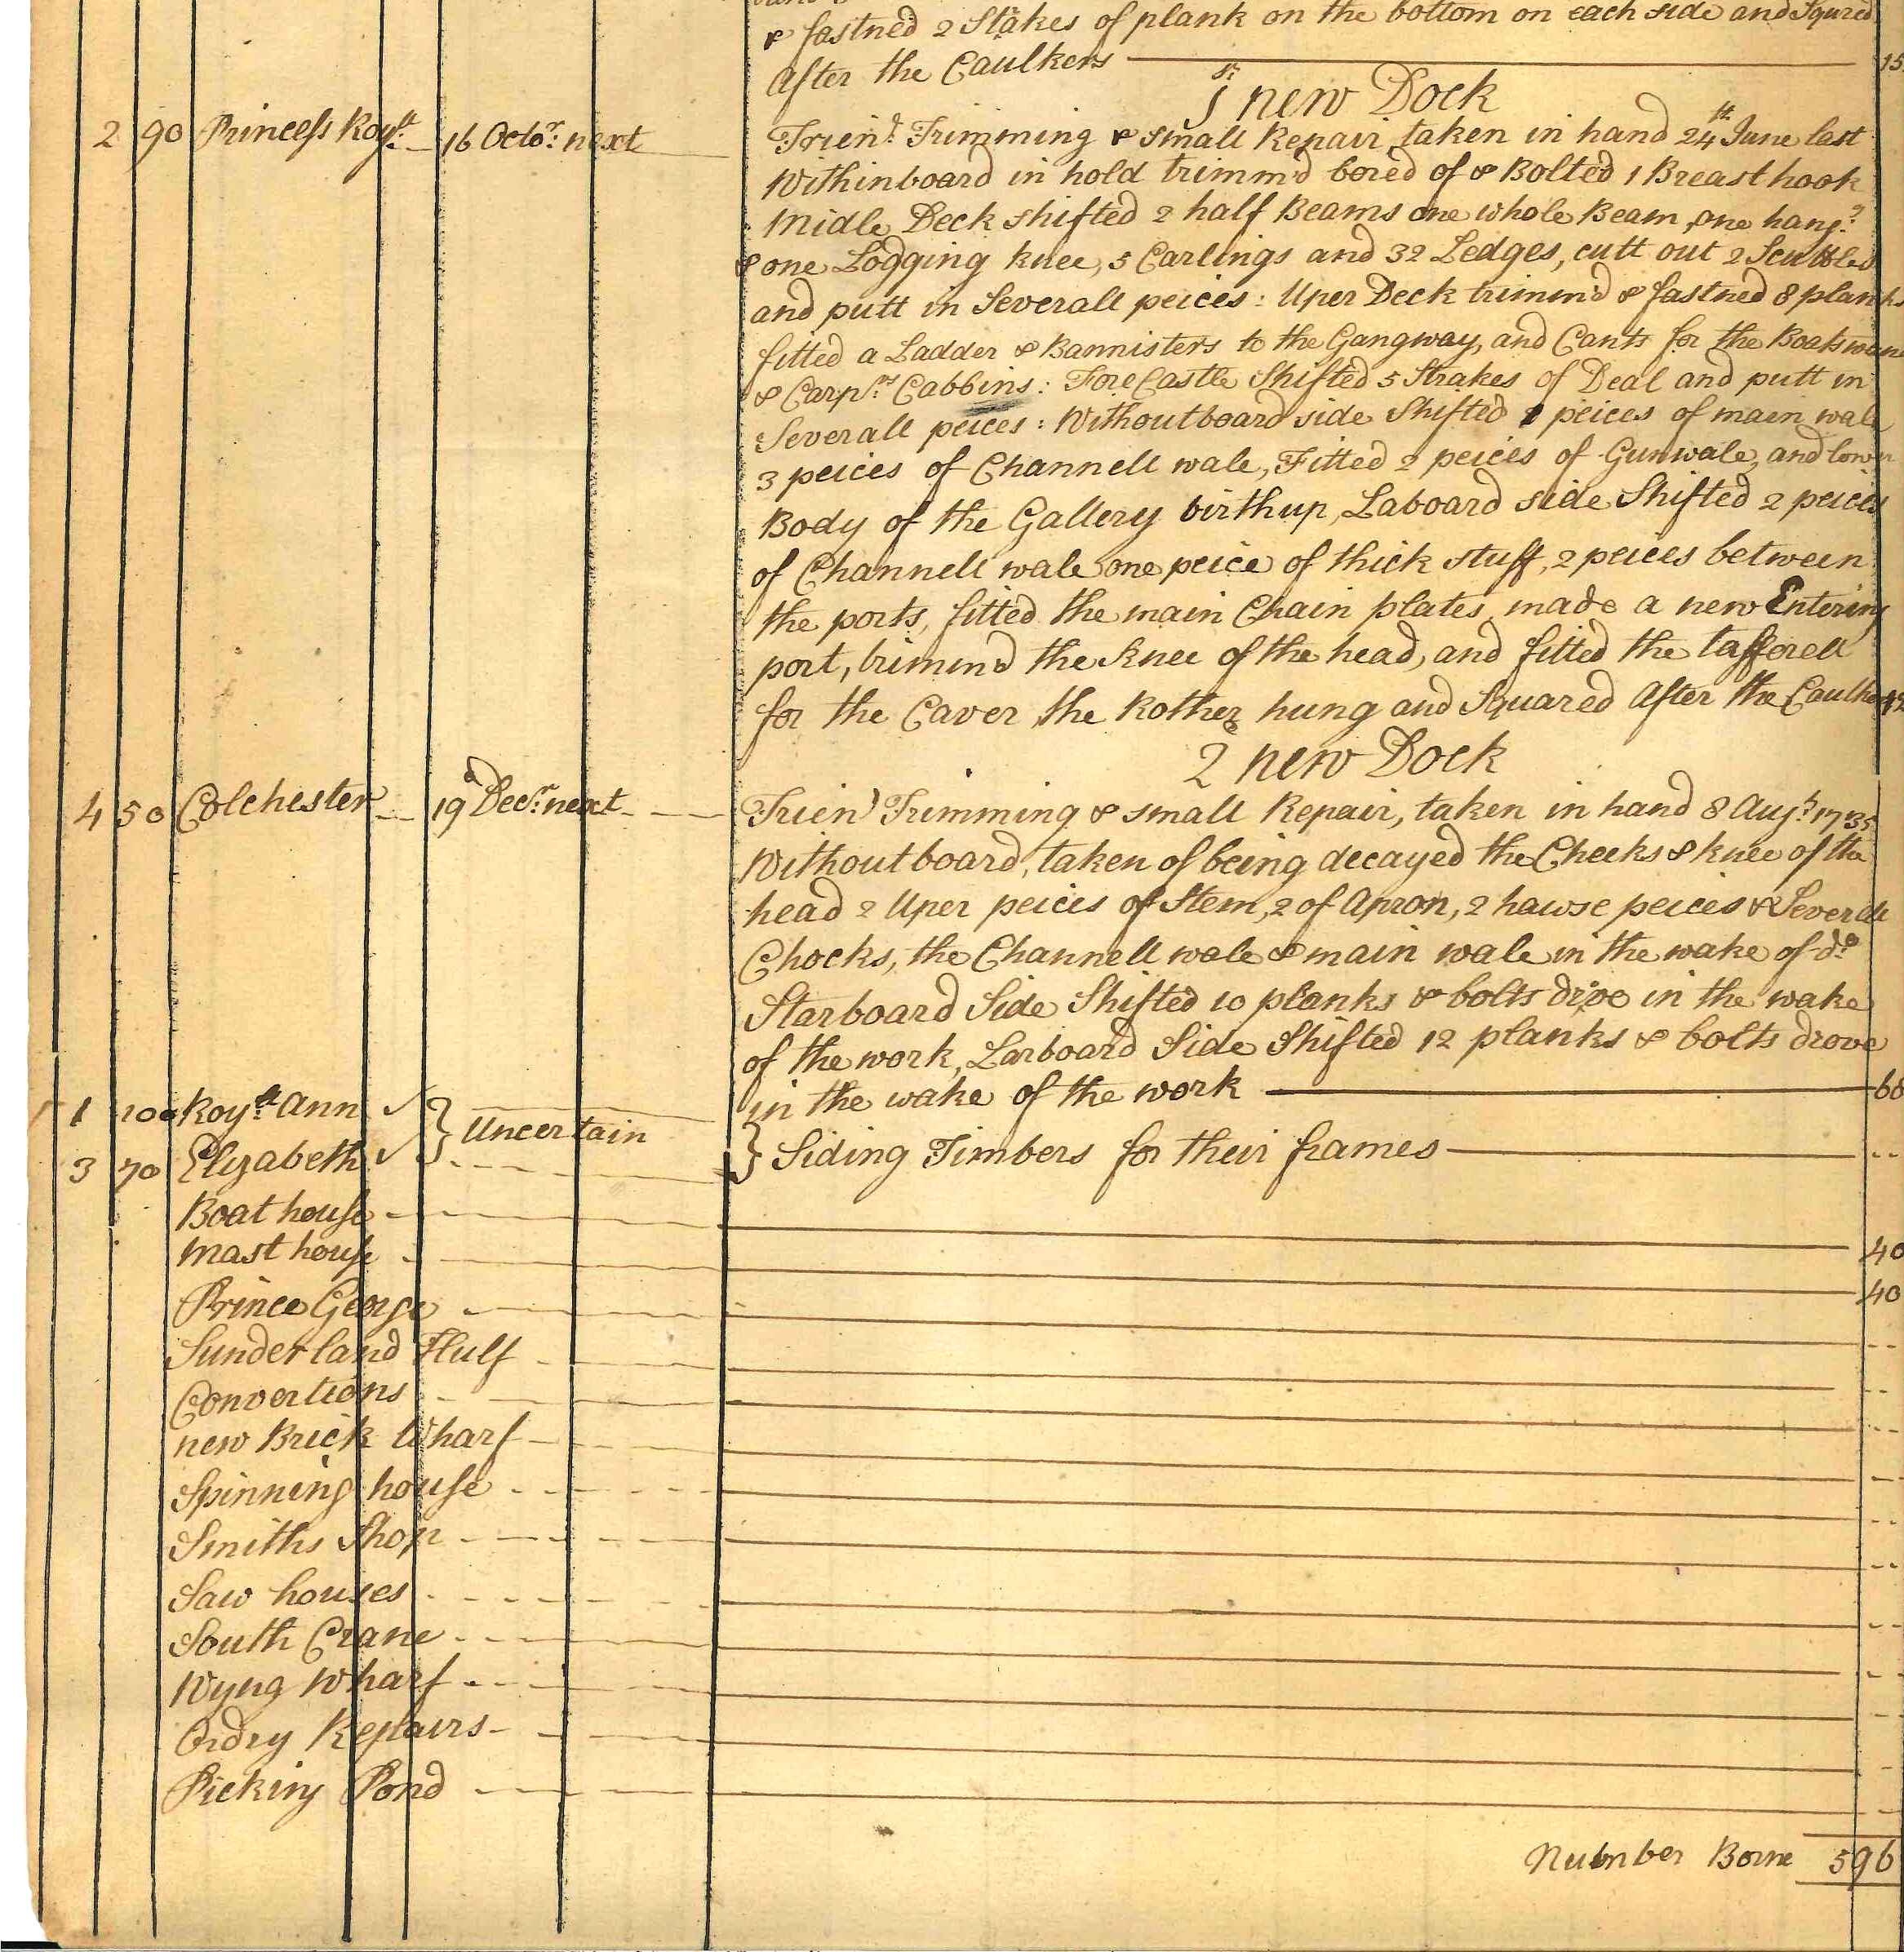 & fastned 2 Stakes of plank on the bottom on each side and Squred
After the Caulkers 15
1st new Dock
2 90 Princess Royll 16 Octor: next Trien'd Trimming & small Repair, taken in hand 24th June last
Withinboard in hold trimm'd bored of & Bolted 1 Breast hook
Midle Deck shifted 2 half Beams one whole Beam one hang:
& one Lodging knee, 5 Carlings and 32 Ledges, cutt out 2 Scuttles
and putt in Severall peices: Uper Deck trimm'd & fastned 8 planks
fitted a Ladder & Bannisters to the Gangway, and Cants for the Boatswans
& Carprs Cabbins: ForeCastle Shifted 5 Strakes of Deal and putt in
Severall peices: Withoutboard side Shifted peices of main wale
3 peices of Channell wale, Fitted 2 peices of Gunwale, and lower
Body of the Gallery birthup, Laboard side Shifted 2 peices
of Channell wale one peice of thick stuff, 2 peices between
the ports, fitted the main Chain plates, made a new Entering
port, trimm'd the knee of the head, and fitted the tafferell
for the Carver the Rother hung and Squared After the Caulkers
2 new Dock
4 50 Colchester 19 Decr: next Trien'd Trimming & small Repair, taken in hand 8 Augt: 1735
Withoutboard, taken of being decayed the Cheeks & knee of the
head 2 Uper peices of Stem, 2 of Apron, 2 hawse peices & Severall
Chocks, the Channell wale & main wale in the wake of do
Starboard Side Shifted 10 planks & bolts drove in the wake
of the work, Larboard Side Shifted 12 planks & bolts drove
in the wake of the work 60
1 100 Royll Ann } Uncertain
3 70 Elizabeth } Siding Timbers for their frames
Boat house 40
Mast house 40
Prince George
Sunderland Hulk
Convertions
new Brick Wharf
Spinning house
Smiths Shop
Saw houses
South Crane
Wyng Wharf
Ordry Repairs
Picking Pond
Number Borne 596